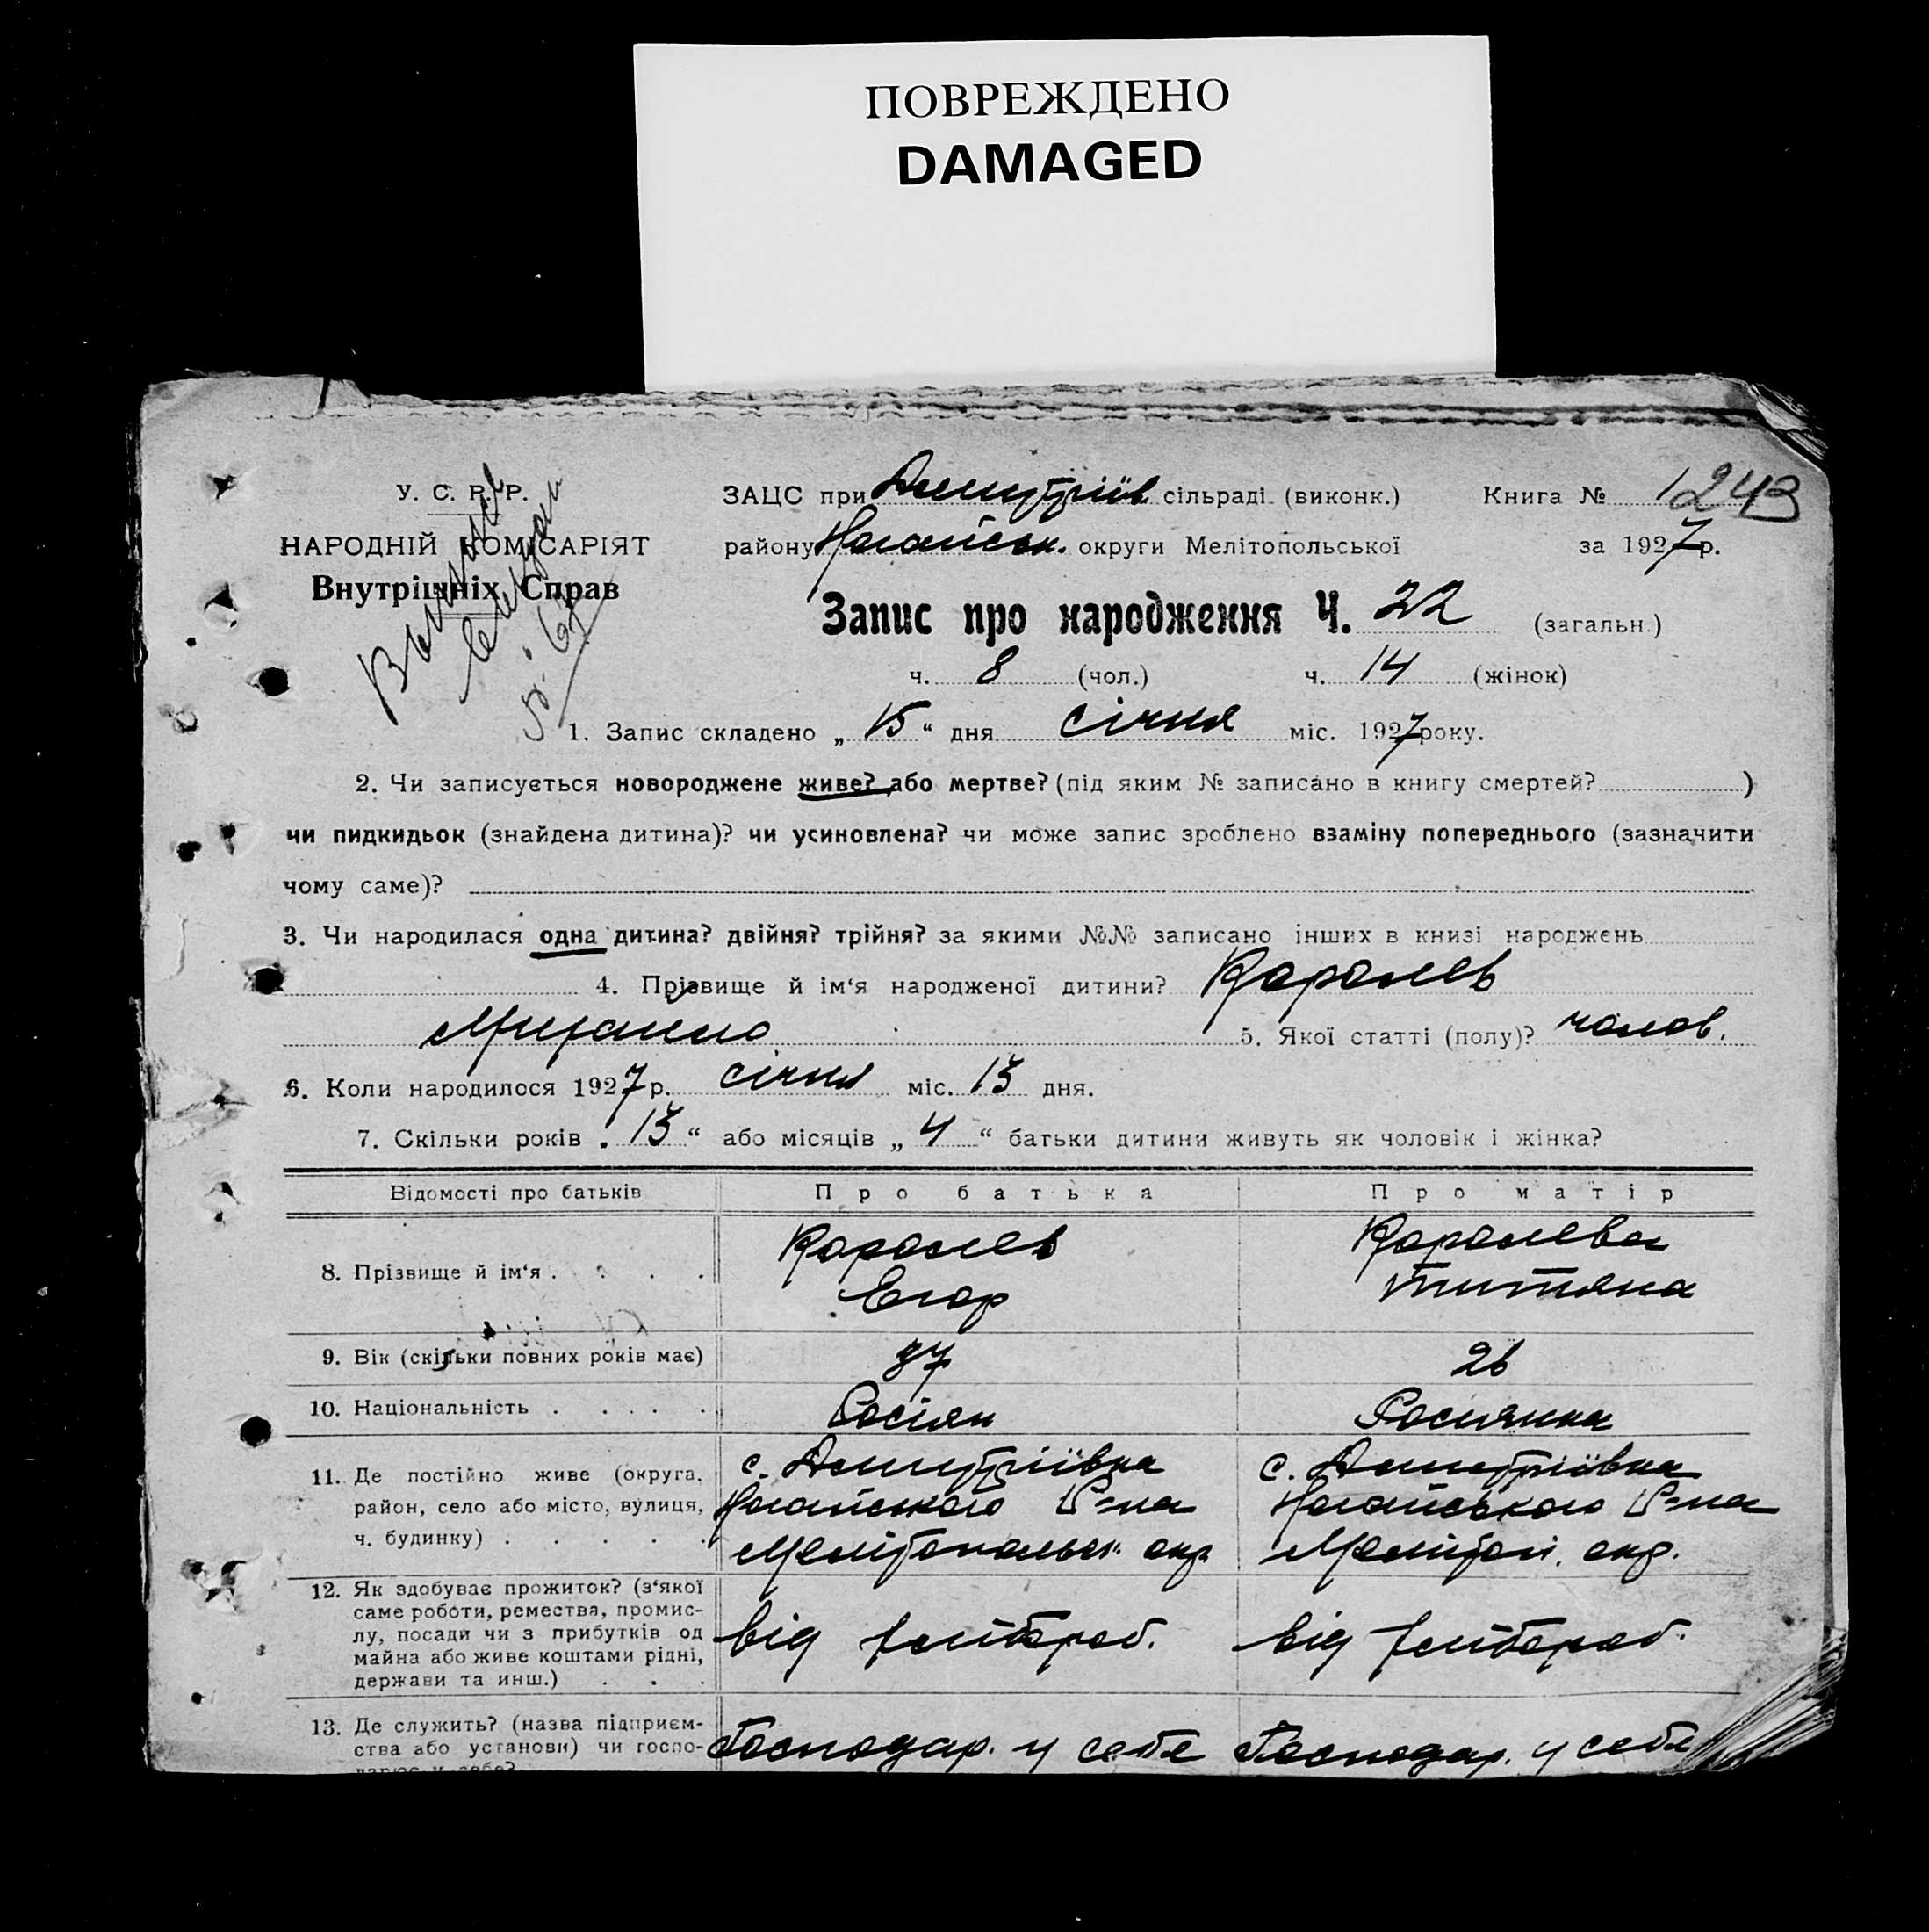 ПОВРЕЖДЕНО
DAMAGED
У. С. Р. Р.
НАРОДНІЙ КОМІСАРІЯТ
Внутрішніх Справ
ЗАЦС при Дмитріїв. сільраді (виконк.) Книга № 1 243
району Ногайськ. округи Мелітопольської за 1927 р.
Запис про народження Ч. 22 (загальн.)
ч. 8 (чол.) ч. 14 (жінок)
1. Запис складено „ 15 “ дня січня міс. 1927 року.
2. Чи записується новороджене живе? або мертве? (під яким № записано в книгу смертей? )
чи пидкидьок (знайдена дитина)? чи усиновлена? чи може запис зроблено взаміну попереднього (зазначити
чому саме)?
3. Чи народилася одна дитина? двійня? трійня? за якими №№ записано інших в книзі народжень
4. Прізвище й ім‘я народженої дитини? Каралев
5. Якої статті (полу)? чолов.
6. Коли народилося 1927 р. січня міс. 13 дня.
7. Скільки років „ 13 “ або місяців „ 4 “ батьки дитини живуть як чоловік і жінка?
Відомості про батьків Про батька Про матір
8. Прізвище й ім‘я . . . . Каралев Каралева
Егор Титяна
9. Вік (скільки повних років має) 37 26
10. Національність . . . . . Росіян Росиянка
11. Де постійно живе (округа, с. Дмитріївка с. Дмитріївка
район, село або місто, вулиця, Ногайського Р-на Ногайського Р-на
ч. будинку) . . . . . Мелітопольськ. окр. Мелітоп. окр.
12. Як здобуває прожиток? (з‘якої
саме роботи, ремества, промис-
лу, посади чи з прибутків од від хлібороб. від хлібороб.
майна або живе коштами рідні,
держави та инш.) . . .
13. Де служить? (назва підприєм-
ства або установи) чи госпо- Господар. у себе Господар. у себе
дарює у себе?